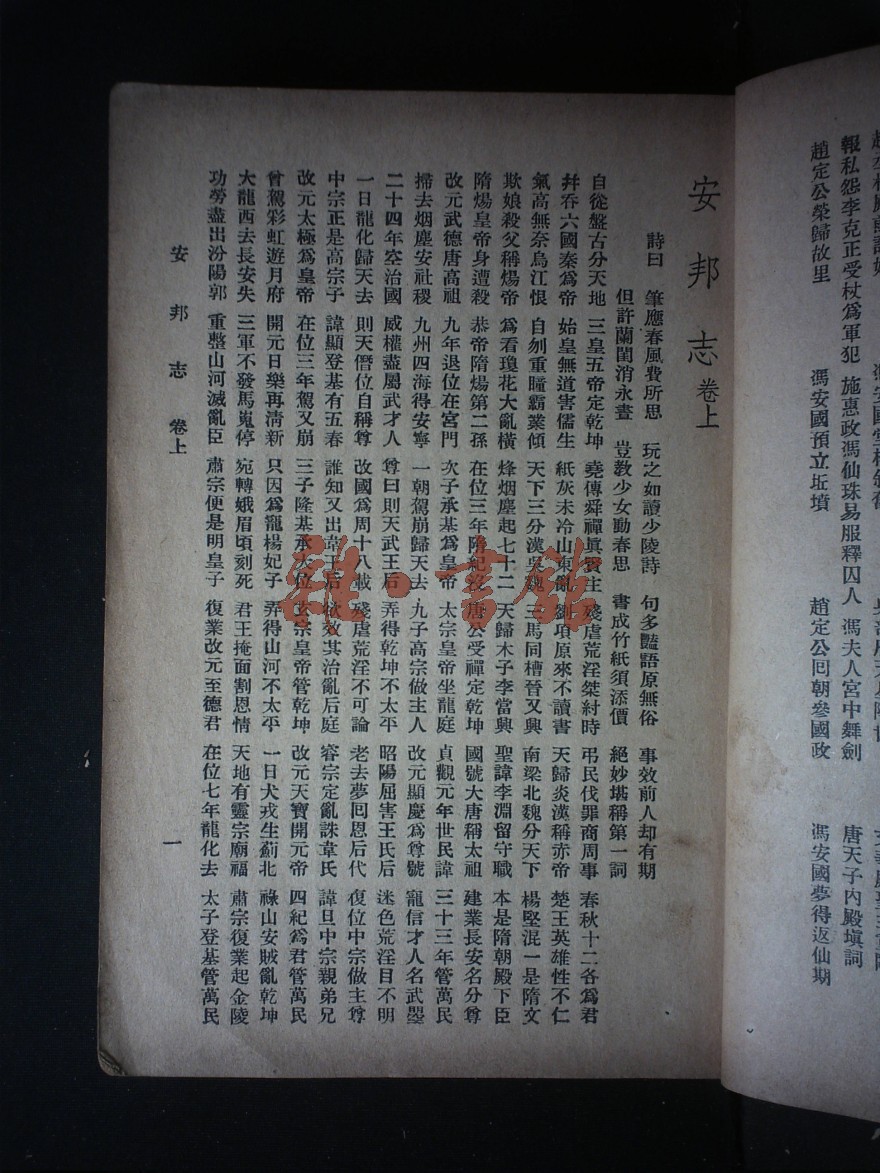 報私怨李克正受杖爲軍犯 施惠政馮仙珠易服釋囚人 馮夫人宮中舞劍 唐天子內殿塡詞
趙定公榮歸故里 馮安國預立坵墳 趙定公囘朝參國政 馮安國夢得返仙期
安邦志 卷上
詩曰 筆應春風費所思 玩之如讀少陵詩 句多豔語原無俗 事效前人却有期
但許蘭閨消永晝 豈教少女動春思 書成竹紙須添價 絕妙堪稱第一詞
自從盤古分天地 三皇五帝定乾坤 堯傳舜禪眞賓主 殘虐荒淫桀紂時 弔民伐罪商周事 春秋十二各爲君
幷吞六國秦爲帝 始皇無道害儒生 紙灰未冷山東亂 劉項原來不讀書 天歸炎漢稱赤帝 楚王英雄性不仁
氣高無奈烏江恨 自刎重瞳霸業傾 天下三分漢吳魏 三馬同槽晉又興 南梁北魏分天下 楊堅混一是隋文
欺娘殺父稱煬帝 爲看瓊花大亂橫 烽烟塵起七十二 天歸木子李當興 聖諱李淵留守職 本是隋朝殿下臣
隋煬皇帝身遭殺 恭帝隋煬第二孫 在位三年隋紀沒 唐公受禪定乾坤 國號大唐稱太祖 建業長安名分尊
改元武德唐高祖 九年退位在宮門 次子承基爲皇帝 太宗皇帝坐龍庭 貞觀元年世民諱 三十三年管萬民
掃去烟塵安社稷 九州四海得安寧 一朝駕崩歸天去 九子高宗做主人 改元顯慶爲尊號 寵信才人名武曌
二十四年空治國 威權盡屬武才人 尊曰則天武王后 弄得乾坤不太平 昭陽屈害王氏后 迷色荒淫目不明
一日龍化歸天去 則天僭位自稱尊 改國爲周十八載 殘虐荒淫不可論 老去夢囘恩后代 復位中宗做主尊
中宗正是高宗子 諱顯登基有五春 誰知又出韋王后 欲效其治亂后庭 睿宗定亂誅韋氏 諱旦中宗親弟兄
改元太極爲皇帝 在位三年駕又崩 三子隆基承大位 玄宗皇帝管乾坤 改元天寶開元帝 四紀爲君管萬民
曾駕彩虹遊月府 開元日樂再淸新 只因爲寵楊妃子 弄得山河不太平 一日犬戎生薊北 祿山安賊亂乾坤
大龍西去長安失 三軍不發馬嵬停 宛轉娥眉頃刻死 君王掩面割恩情 天地有靈宗廟福 肅宗復業起金陵
功勞盡出汾陽郭 重整山河滅亂臣 肅宗便是明皇子 復業改元至德君 在位七年龍化去 太子登基管萬民
安邦志 卷上 一
雜·書館